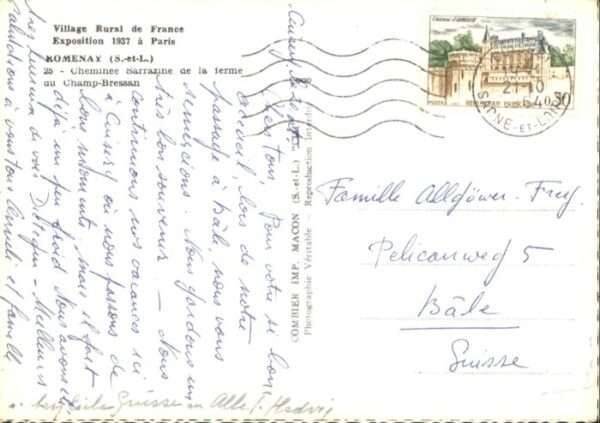 Village Rural de France
Exposition 1937 à Paris
ROMENAY (S.-et-L.)
25 - Cheminée Sarrasine de la ferme
du Champ-Bressan
Chers tous, Pour votre si bon
accueil, lors de notre
passage à Bâle, nous vous
remercions. Nous gardons un
très bon souvenir - Nous
continuons nos vacances ici
à Cuisery où nous passons de
bons moments, mais il fait
déjà un peu froid. Nous avons été
très heureux de voir - Meilleures
salutations à vous tous et famille
COMBIER IMP. MACON (S.-et-L.)
Photographie Véritable - Reproduction Interdite
0,30
SAÔNE-ET-LOIRE
Famille Allgöwer-Frey
Pelicanweg 5
Bâle
Suisse